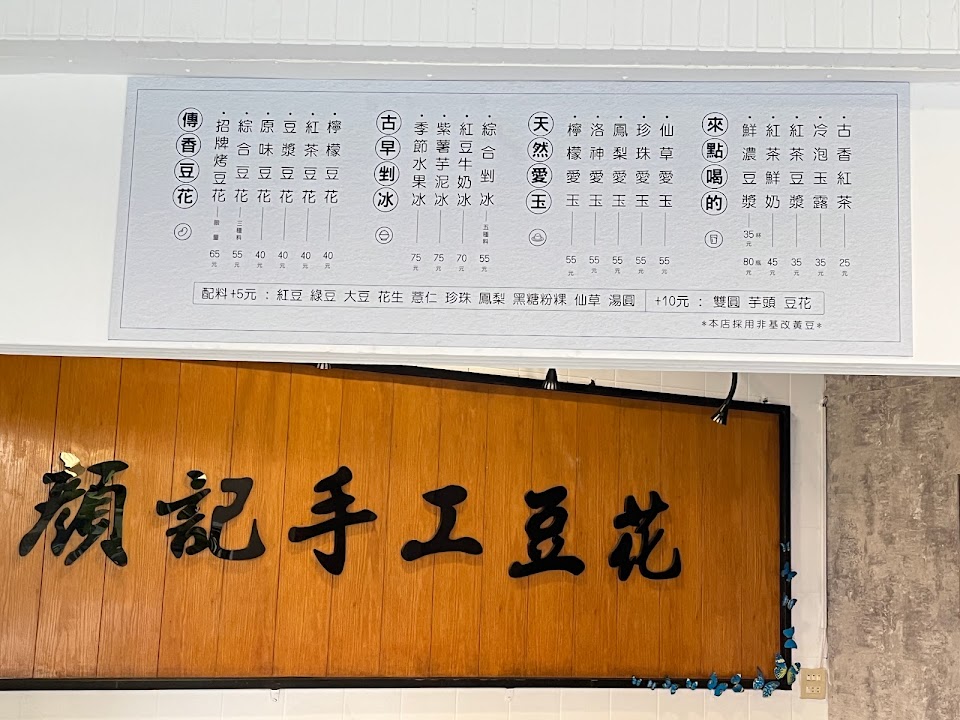 傳香豆花
招牌烤豆花 限量 65元
綜合豆花 三種料 55元
原味豆花 40元
豆漿豆花 40元
紅茶豆花 40元
檸檬豆花 40元
古早剉冰
季節水果冰 75元
紫薯芋泥冰 75元
紅豆牛奶冰 70元
綜合剉冰 五種料 55元
天然愛玉
檸檬愛玉 55元
洛神愛玉 55元
鳳梨愛玉 55元
珍珠愛玉 55元
仙草愛玉 55元
來點喝的
鮮濃豆漿 35杯元 80瓶元
紅茶鮮奶 45元
紅茶豆漿 35元
冷泡玉露 35元
古香紅茶 25元
配料+5元：紅豆 綠豆 大豆 花生 薏仁 珍珠 鳳梨 黑糖粉粿 仙草 湯圓
+10元：雙圓 芋頭 豆花
*本店採用非基改黃豆*
顏記手工豆花